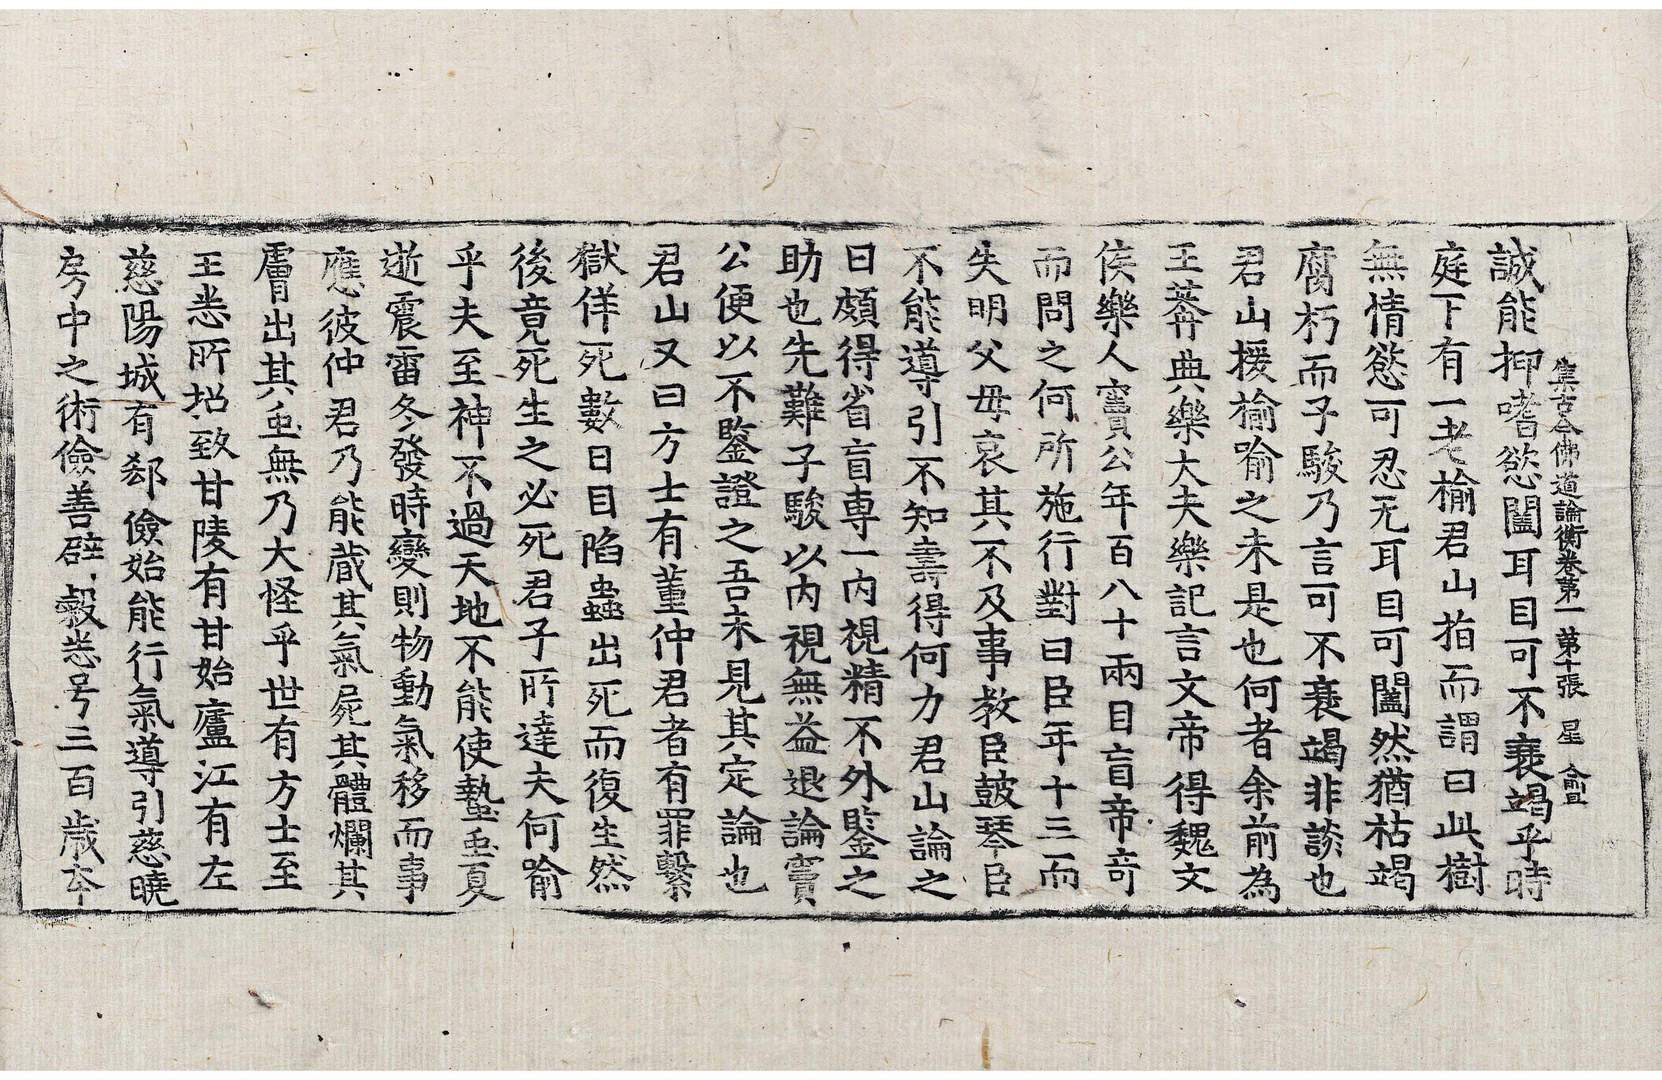 集古今佛道論衡卷第一 第十張 星
誠能抑嗜慾闔耳目可不衰竭乎時
庭下有一老榆君山指而謂曰此樹
無情慾可忍无耳目可闔然猶枯竭
腐朽而子駿乃言可不衰竭非談也
君山援榆喻之未是也何者余前為
王莽典樂大夫樂記言文帝得魏文
侯樂人竇公年百八十兩目盲帝奇
而問之何所施行對曰臣年十三而
失明父母哀其不及事教臣鼓琴臣
不能導引不知壽得何力君山論之
曰頗得省盲専一內視精不外鑒之
助也先難子駿以內視無益退論竇
公便以不鑒證之吾未見其定論也
君山又曰方士有董仲君者有罪繫
獄佯死數日目陷蟲出死而復生然
後竟死生之必死君子所達夫何喻
乎夫至神不過天地不能使蟄䖝夏
逝震雷冬發時變則物動氣移而事
應彼仲君乃能蔵其氣屍其體爛其
膚出其䖝無乃大怪乎世有方士至
王悉所招致甘陵有甘始廬江有左
慈陽城有郄儉始能行氣導引慈曉
房中之術儉善辟穀悉号三百歳卒